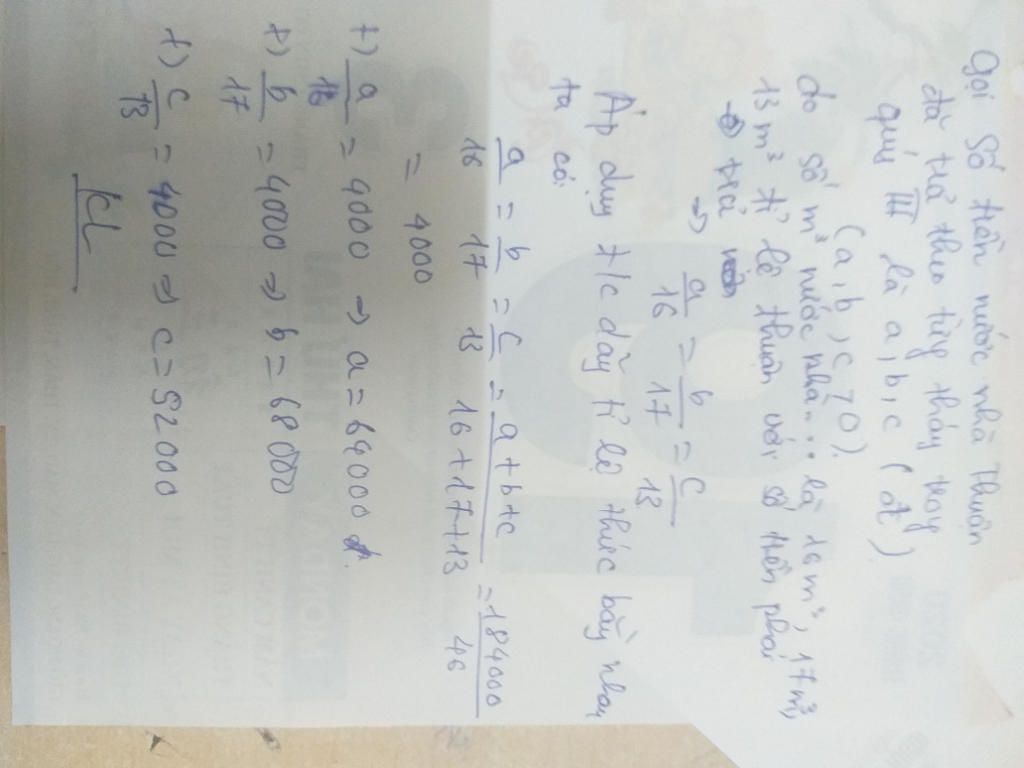 Gọi số tiền nước nhà Thuận
đã trả theo từng tháng trong
quý III là a, b, c (đ)
(a, b, c > 0).
do số m³ nước nhà... là 16m³, 17m³,
13m³ tỉ lệ thuận với số tiền phải
→ trả
→ a/16 = b/17 = c/13
Áp dụng t/c dãy tỉ lệ thức bằng nhau
ta có:
a/16 = b/17 = c/13 = a+b+c/16+17+13 = 184000/46
= 4000
+) a/16 = 4000 → a = 64000 đ.
+) b/17 = 4000 → b = 68000
+) c/13 = 4000 → c = 52000
KL